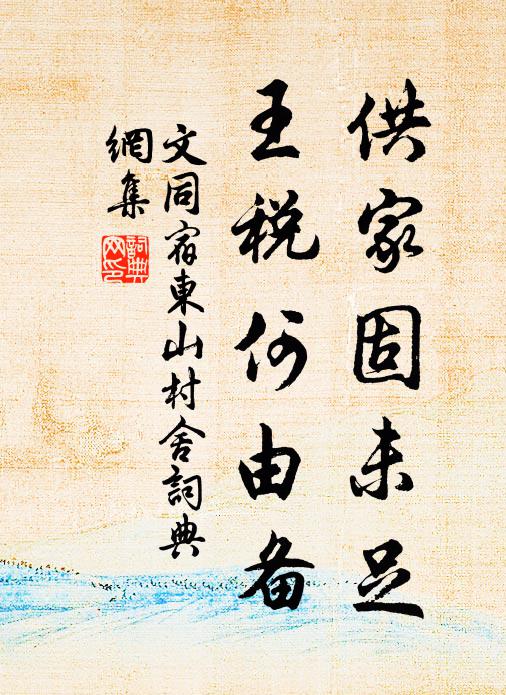 供家固未足
王税何由备
文同宿東山村舍詞典
網集
詞典
网印